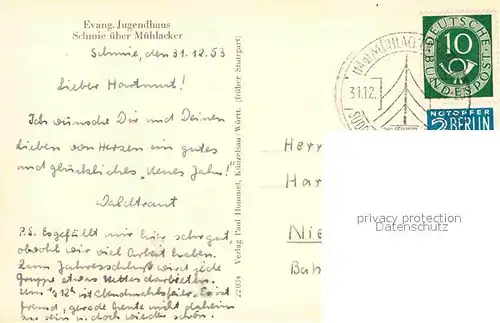 Evang. Jugendhaus
Schmie über Mühlacker
Schmie, den 31.12.53
Lieber Hartmut!
Ich wünsche Dir und Deinen
Lieben von Herzen ein gutes
und glückliches „Neues Jahr!“
Waldtraut
P.S. Es gefällt mir hier sehr gut
obwohl wir viel Arbeit haben.
Zum Jahresschluß wird jede
Gruppe etwas Nettes darbieten.
Um ½12 h ist Abendmahlsfeier. Es ist
fremd, gerade heute nicht daheim
zu sein u. doch wieder schön.
22 034 Verlag Paul Hommel, Künzelsau Württ. (früher Stuttgart)
MÜHLAC
31.12.
DEUTSCHE
BUNDESPOST
10
NOTOPFER
2 BERLIN
Herr
Har
Nie
Bah
privacy protection
Datenschutz